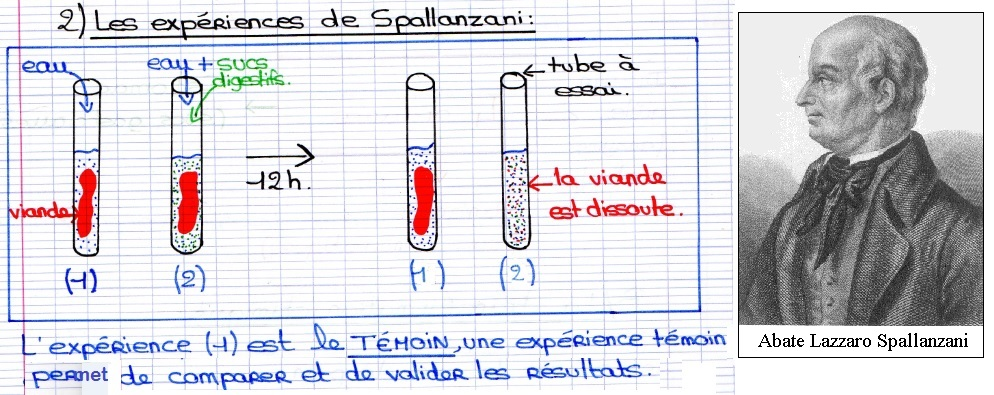 2) Les expériences de Spallanzani:
eau
eau + sucs
digestifs.
tube à
essai.
12h.
viande
la viande
est dissoute.
(1)
(2)
(1)
(2)
L'expérience (1) est le TÉMOIN, une expérience témoin
permet de comparer et de valider les résultats.
Abate Lazzaro Spallanzani